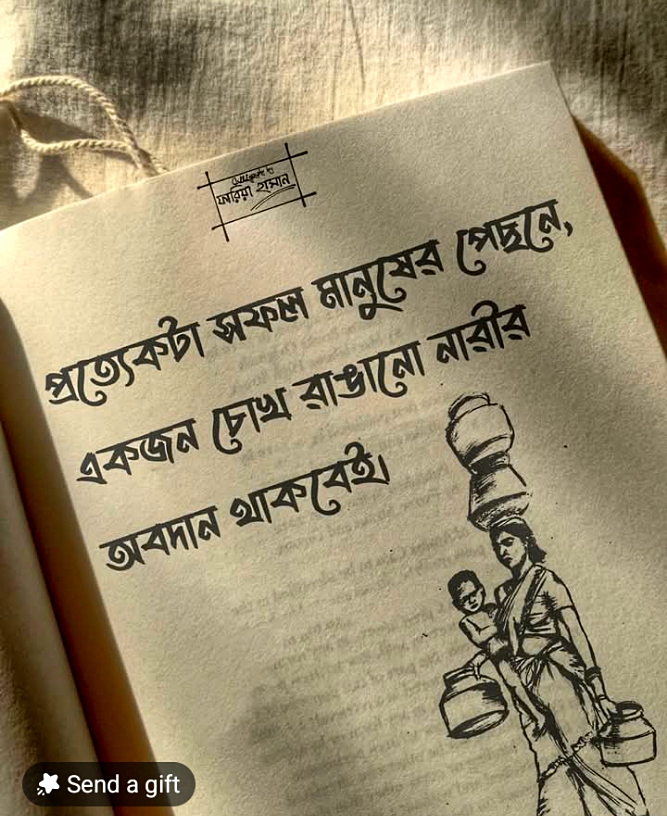 ফারিয়া হাসান
প্রত্যেকটা সফল মানুষের পেছনে,
একজন চোখ রাঙানো নারীর
অবদান থাকবেই।
Send a gift